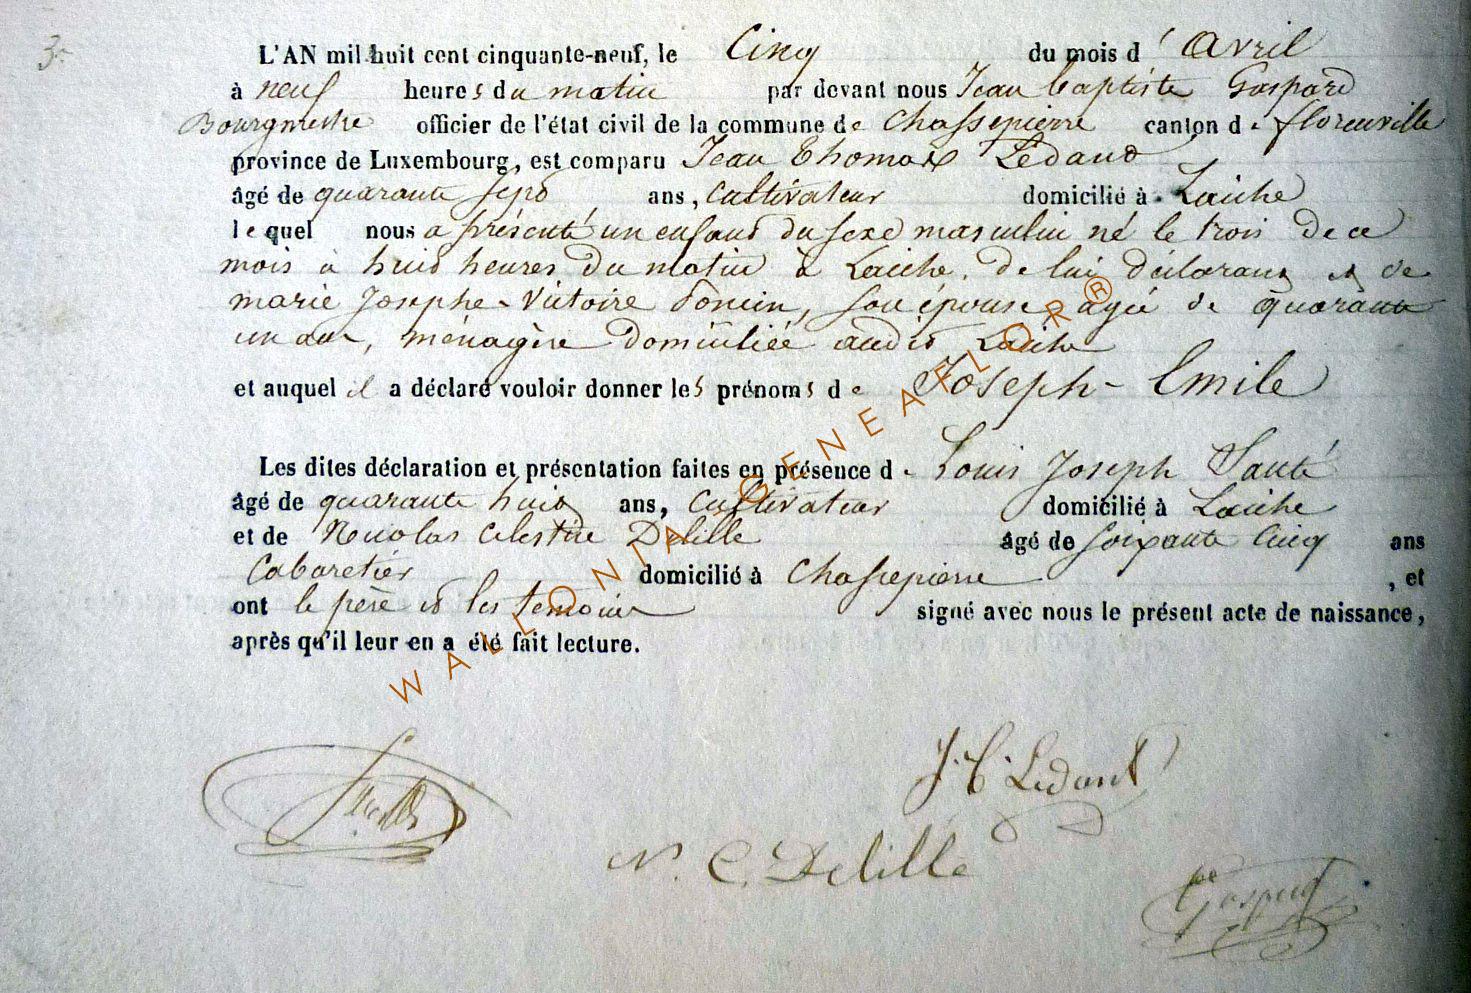 3.
L'AN mil huit cent cinquante-neuf, le Cinq du mois d' Avril
à neuf heures du matin par devant nous Jean baptiste Gaspard
Bourgmestre officier de l'état civil de la commune de Chassepierre canton de florenville
province de Luxembourg, est comparu Jean Thomas Ledant
âgé de quarante sept ans, Cultivateur domicilié à Laiche
lequel nous a présenté un enfant du sexe masculin né le trois de ce
mois à huit heures du matin à Laiche, de lui déclarant et de
marie Josephe Victoire Poncin, son épouse agée de quarante
un ans, ménagère domiciliée audit Laiche
et auquel il a déclaré vouloir donner les prénoms de Joseph-Emile
Les dites déclaration et présentation faites en présence de Louis Joseph
âgé de quarante huit ans, Cultivateur domicilié à Laiche
et de Nicolas Celestin Delille âgé de soixante Cinq ans
Cabaretier domicilié à Chassepierre, et
ont le père et les temoins signé avec nous le présent acte de naissance,
après qu'il leur en a été fait lecture.
J. T. Ledant
N. C. Delille
Gaspard
WALLONIA-GENEAFLOR®